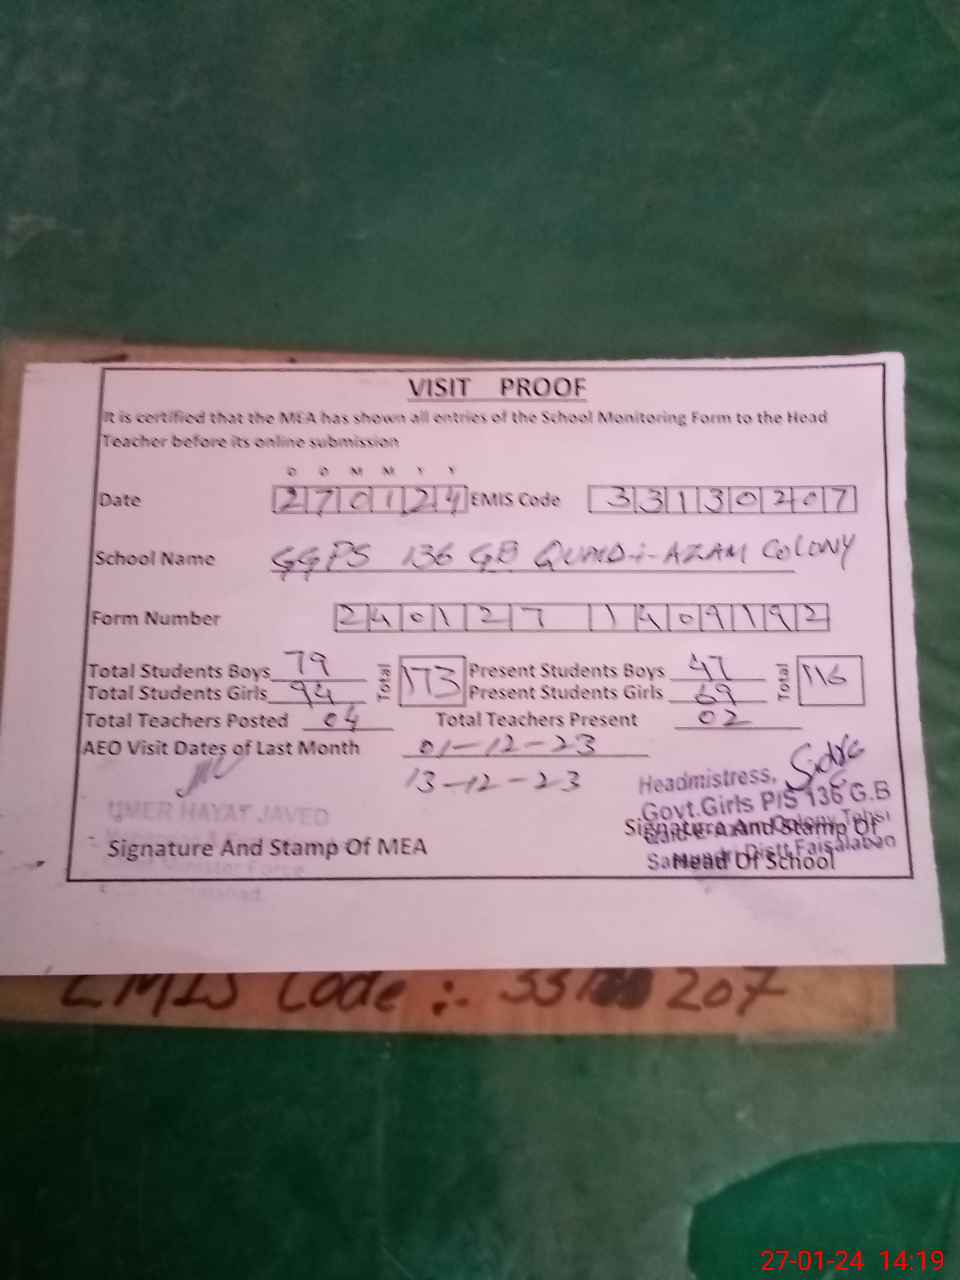 VISIT PROOF
It is certified that the MEA has shown all entries of the School Monitoring Form to the Head
Teacher before its online submission
D D M M Y Y
Date 270124 EMIS Code 33130207
School Name GGPS 136 GB QUAID-i-AZAM COLONY
Form Number 240127 1409192
Total Students Boys 79 Total 173 Present Students Boys 47 Total 116
Total Students Girls 94 Present Students Girls 69
Total Teachers Posted 04 Total Teachers Present 02
AEO Visit Dates of Last Month 01-12-23
13-12-23
UMER HAYAT JAVED
Signature And Stamp Of MEA
Headmistress,
Govt.Girls P/S 136 G.B
Signature And Stamp Of
Distt Faisalabad
Head Of School
EMIS Code :- 207
27-01-24 14:19